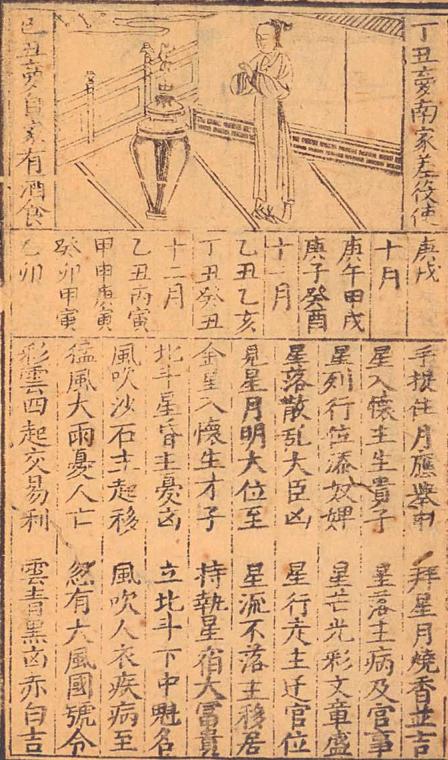 丁丑夣南家差役使
己丑夣自家有酒食
庚戌
十月
庚午甲戌
庚子癸酉
十一月
乙丑乙亥
丁丑癸丑
十二月
乙丑丙寅
甲申庚寅
癸卯甲寅
乙卯
手捉住月應舉中 拜星月燒香並吉
星入懷主生貴子 星落主病及官事
星列行位添奴婢 星芒光彩文章盛
星落散乱大臣凶 星行走主迁官位
見星月明大位至 星流不落主移居
金星入懷生才子 持執星宿大富貴
北斗星昏主憂凶 立北斗下中魁名
風吹沙石主起移 風吹人衣疾病至
猛風大雨憂人亡 忽有大風國號令
彩雲四起交易利 雲青黑凶赤白吉